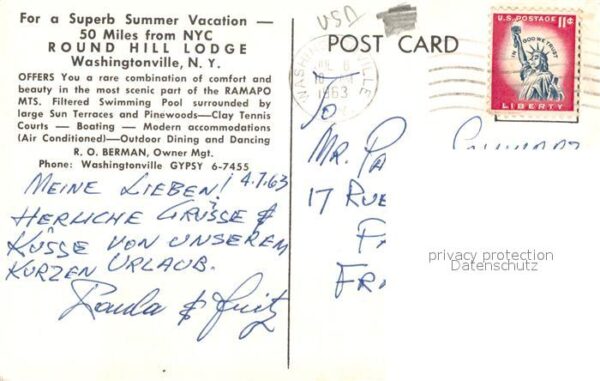 For a Superb Summer Vacation —
50 Miles from NYC
ROUND HILL LODGE
Washingtonville, N. Y.
OFFERS You a rare combination of comfort and
beauty in the most scenic part of the RAMAPO
MTS. Filtered Swimming Pool surrounded by
large Sun Terraces and Pinewoods—Clay Tennis
Courts — Boating — Modern accommodations
(Air Conditioned)—Outdoor Dining and Dancing
R. O. BERMAN, Owner Mgt.
Phone: Washingtonville GYPSY 6-7455
MEINE LIEBEN! 4.7.63
HERLICHE GRÜSSE &
KÜSSE VON UNSEREM
KURZEN URLAUB.
Paula & Fritz
USA
POST CARD
WASHINGTONVILLE
1963
U.S. POSTAGE 11¢
IN GOD WE TRUST
LIBERTY
To
MR. PA
17 RUE
FRA
privacy protection
Datenschutz